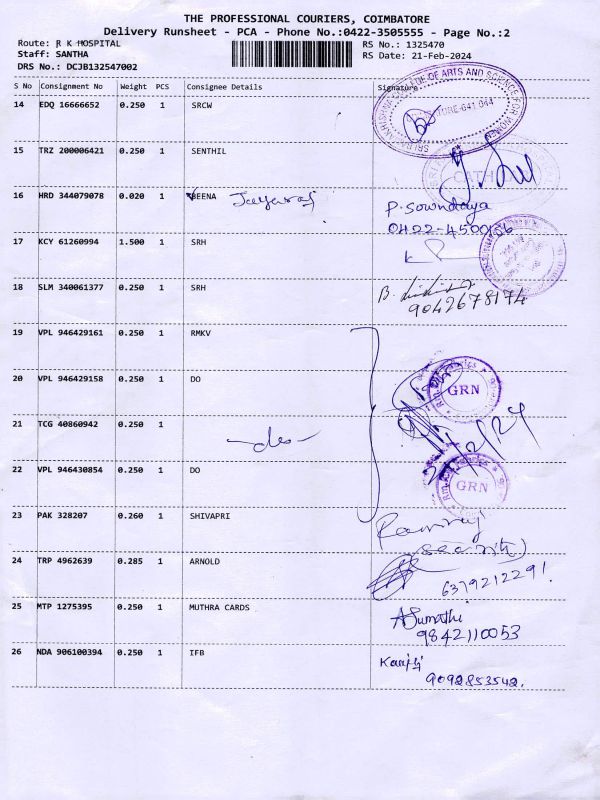 THE PROFESSIONAL COURIERS, COIMBATORE
Delivery Runsheet - PCA - Phone No.:0422-3505555 - Page No.:2
Route: R K HOSPITAL
Staff: SANTHA
DRS No.: DCJB132547002
RS No.: 1325470
RS Date: 21-Feb-2024
S No Consignment No Weight PCS Consignee Details Signature
14 EDQ 16666652 0.250 1 SRCW
COLLEGE OF ARTS AND SCIENCE FOR WOMEN
641 044
15 TRZ 200006421 0.250 1 SENTHIL
16 HRD 344079078 0.020 1 VEENA Jayaraj P. Sowndarya
0422-4500156
17 KCY 61260994 1.500 1 SRH
18 SLM 340061377 0.250 1 SRH B.
9042678174
19 VPL 946429161 0.250 1 RMKV
20 VPL 946429158 0.250 1 DO
GRN
21 TCG 40860942 0.250 1 -do-
22 VPL 946430854 0.250 1 DO
GRN
23 PAK 328207 0.260 1 SHIVAPRI Ramraj
24 TRP 4962639 0.285 1 ARNOLD
6379212291.
25 MTP 1275395 0.250 1 MUTHRA CARDS A Sumathi
9842110053
26 NDA 906100394 0.250 1 IFB
9092853542.